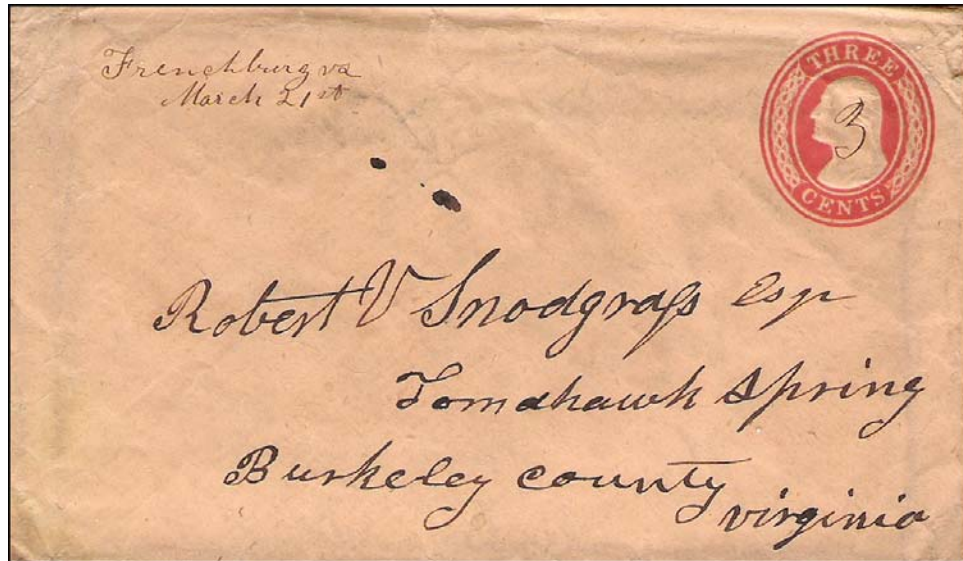 Frenchburg va
March 21st
THREE
3
CENTS
Robert V Snodgrass Esqr
Tomahawk Spring
Burkeley County
virginia